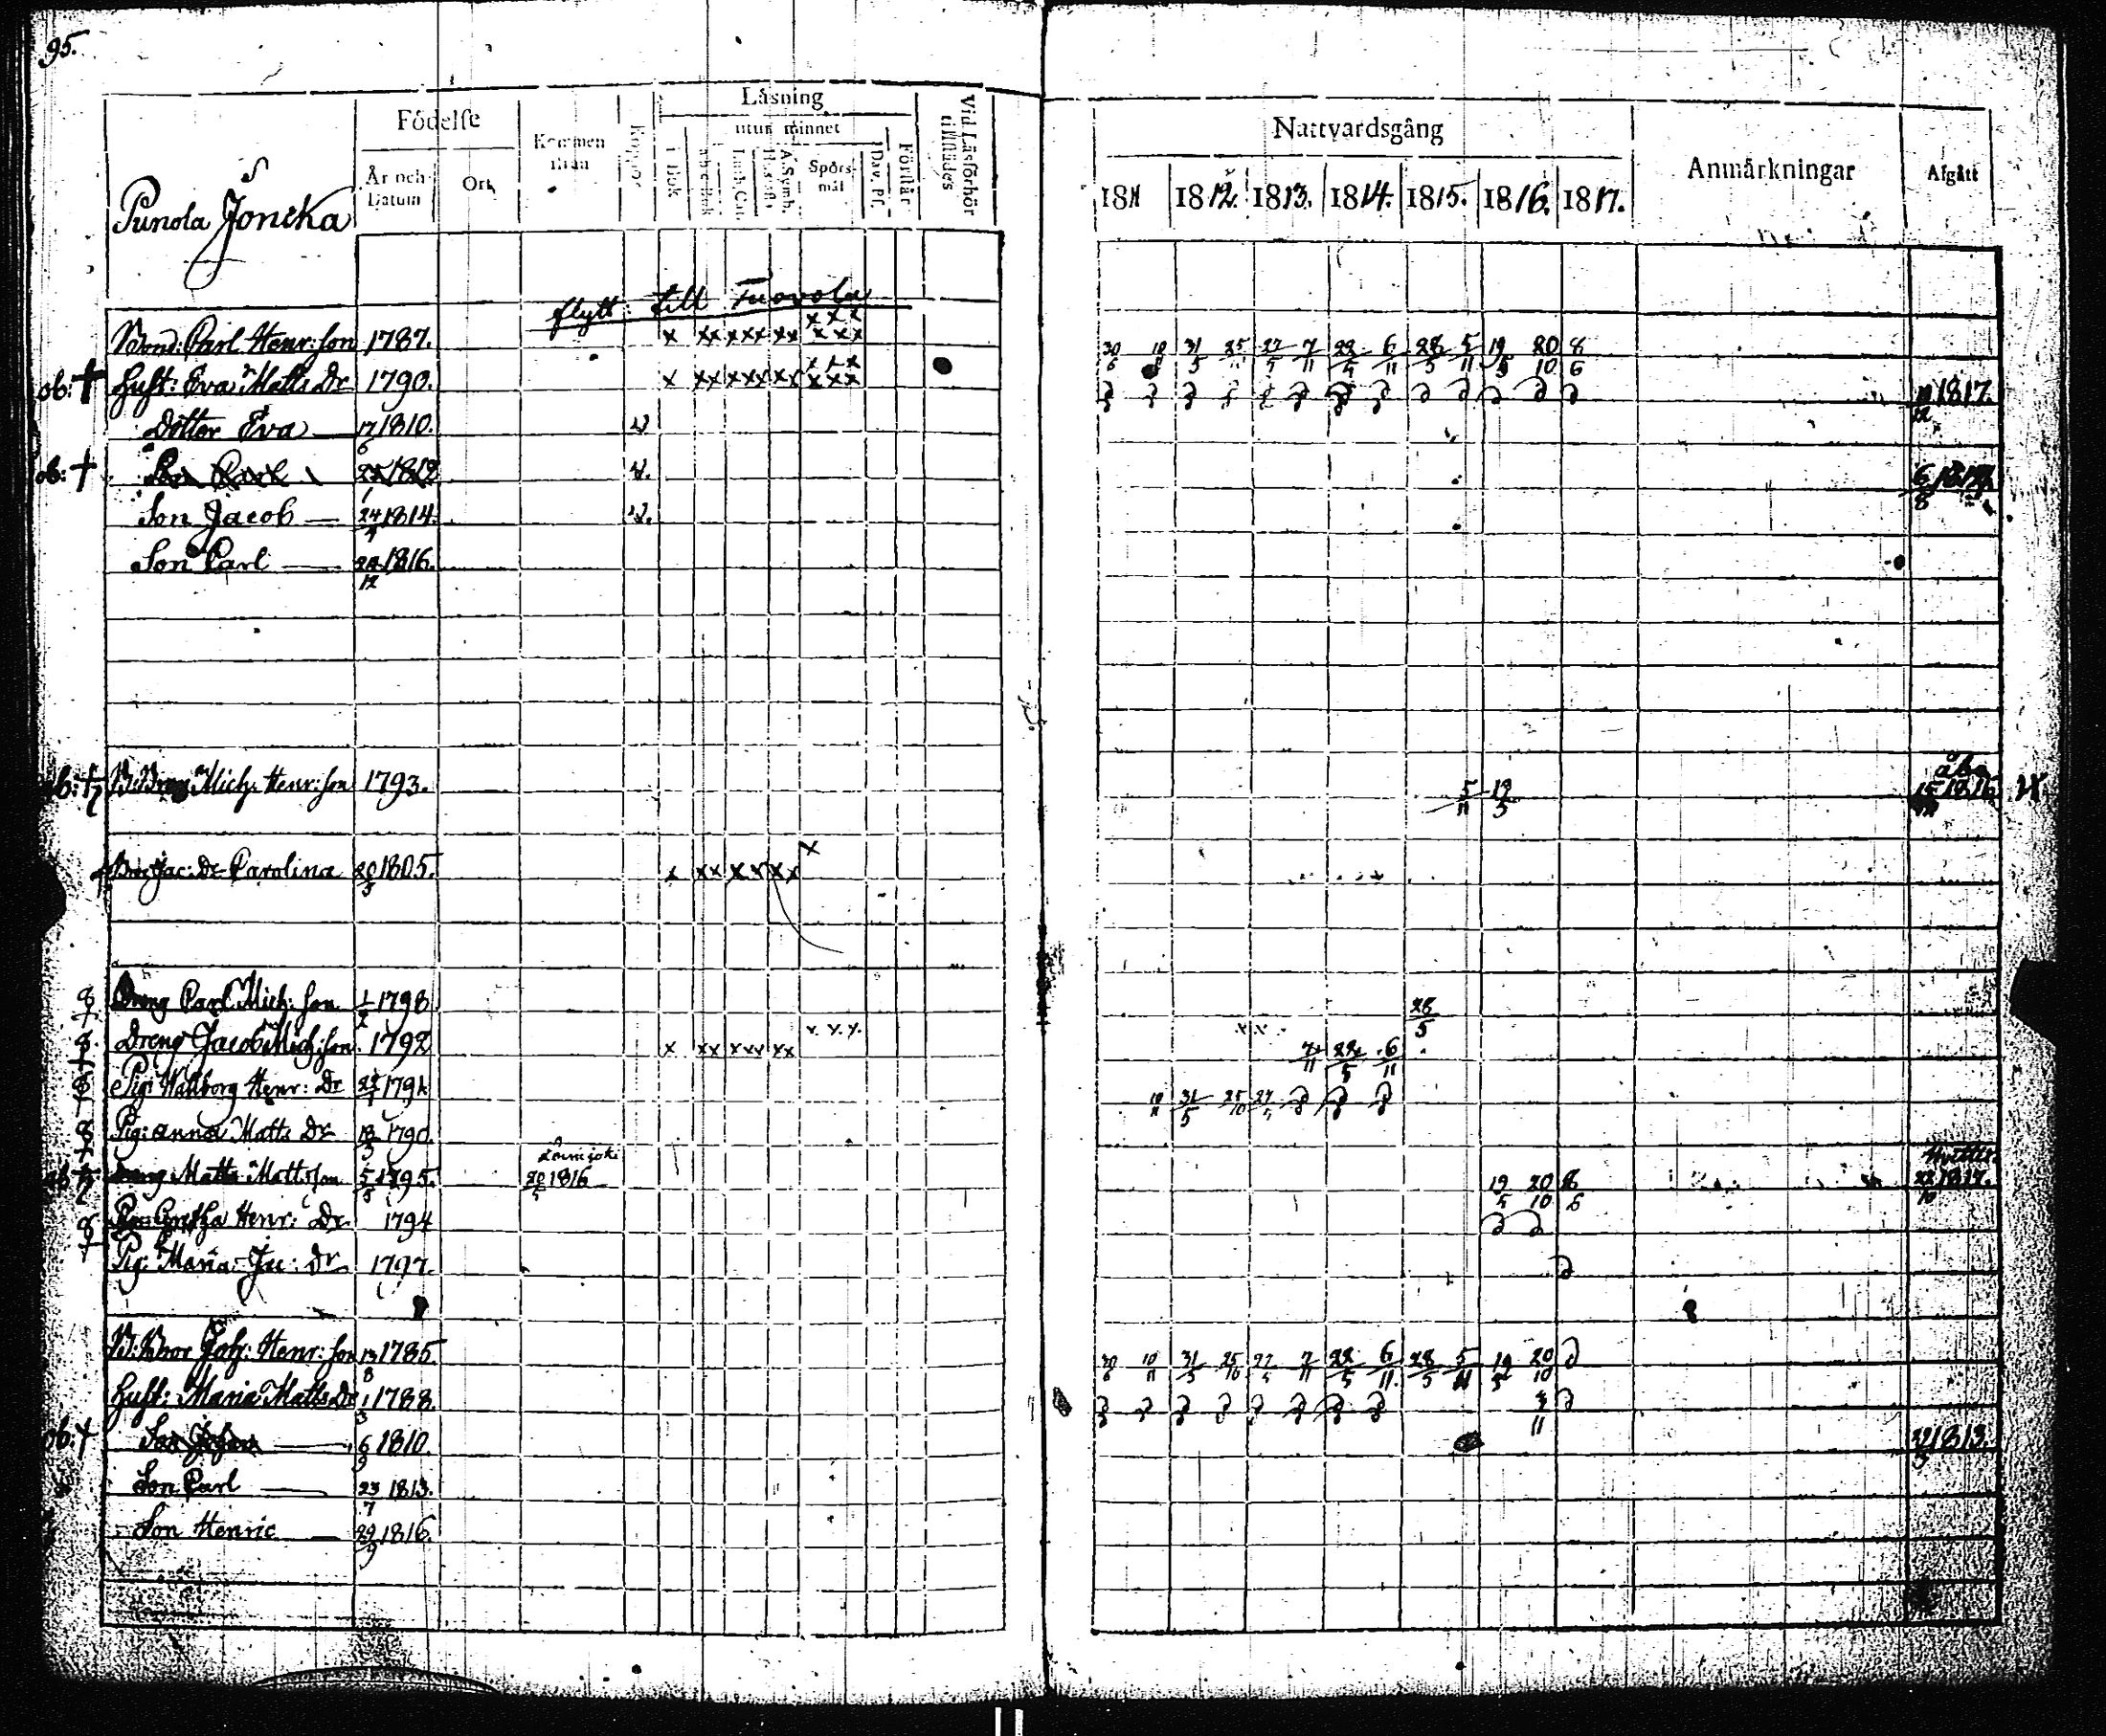 95.
Födelse
Kommen ifrån
Koppor
Läsning
utur minnet
Vid Läsförhör tillstädes
Nattvardsgång
Anmärkningar
Afgått
År och Datum
Ort
i Bok
a b c Bok
Luth. Cat.
Hustafla
A. Symb.
Spörsmål
Dav. Ps.
Förstår
1811 1812. 1813. 1814. 1815. 1816. 1817.
Punola Joncka
flytt: till Tuovola
Bond: Carl Henr: son 1787. x xx xxx xx xxx xxx 30/6 10/11 31/5 25 27/5 7/11 22/5 6/11 28/5 5/11 19/5 20/10 8/6
ob: † Hust: Eva Matts Dr 1790. x xx xxx xx xxx xxx 11/12 1817.
Dotter Eva 17/6 1810. v
ob: † Son Carl 1812 v. 6/8
Son Jacob 24/4 1814. v.
Son Carl 1816.
12
ob: † B: Dreng Mich: Henr: son 1793. 5/11 19/5 åbo 1816
Jac: Dr Carolina 20/5 1805. x xx xx xx x
Dreng Carl Mich: son 1/2 1798. 28/5
Dreng Jacob Mich: son 1792 x xx xxx xx x x x 7/11 22/5 6/11
Pig: Wallborg Henr: Dr 1791 10/11 31/5 25/10 27/5
Pig: Anna Matts Dr 1790
Dreng Matts Matts son 5/5 1795. Loimijoki 1816 19/5 20/10 8/6 22/10 1817.
Gretha Henr: Dr 1794
Pig: Maria Ja: Dr 1797
B: Bror Joh: Henr: son 13/8 1785. 30/6 10/11 31/5 25/10 27/5 7/11 22/5 6/11 28/5 5/11 19/5 20/10
Hust: Maria Matts Dr 1/3 1788.
ob: † Son Johan 6 1810. 1813.
Son Carl 23/7 1813.
Son Henric 29/9 1816.